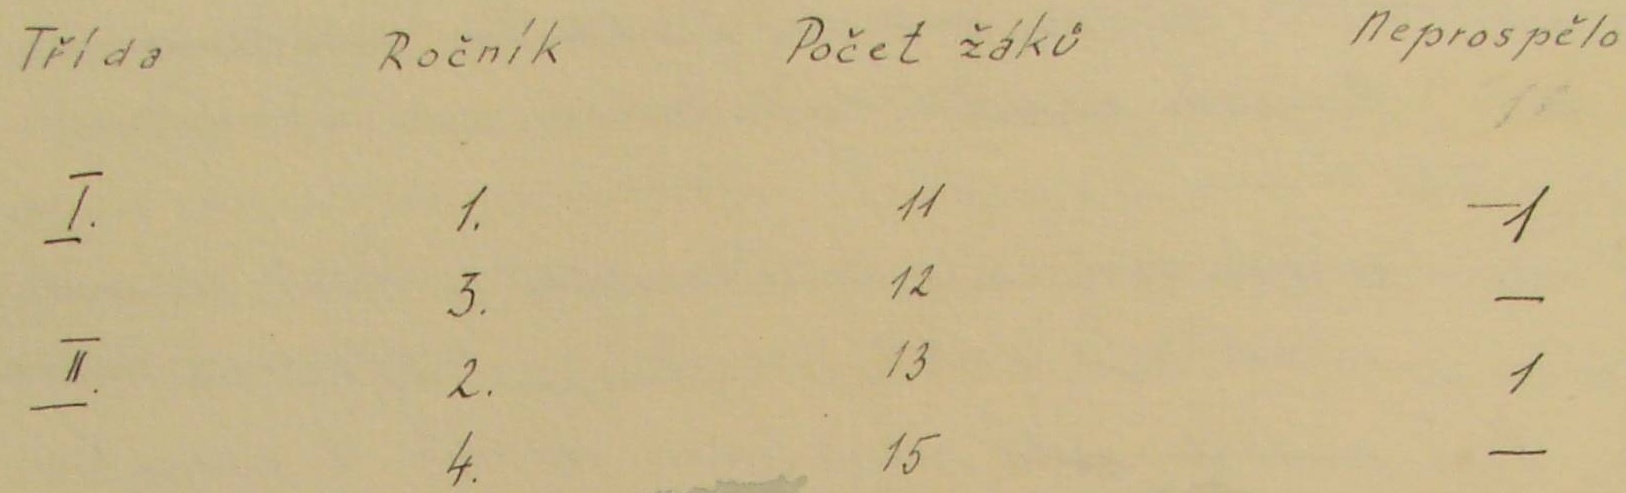 Třída Ročník Počet žáků Neprospělo
I. 1. 11 —1
3. 12 —
II. 2. 13 1
4. 15 —